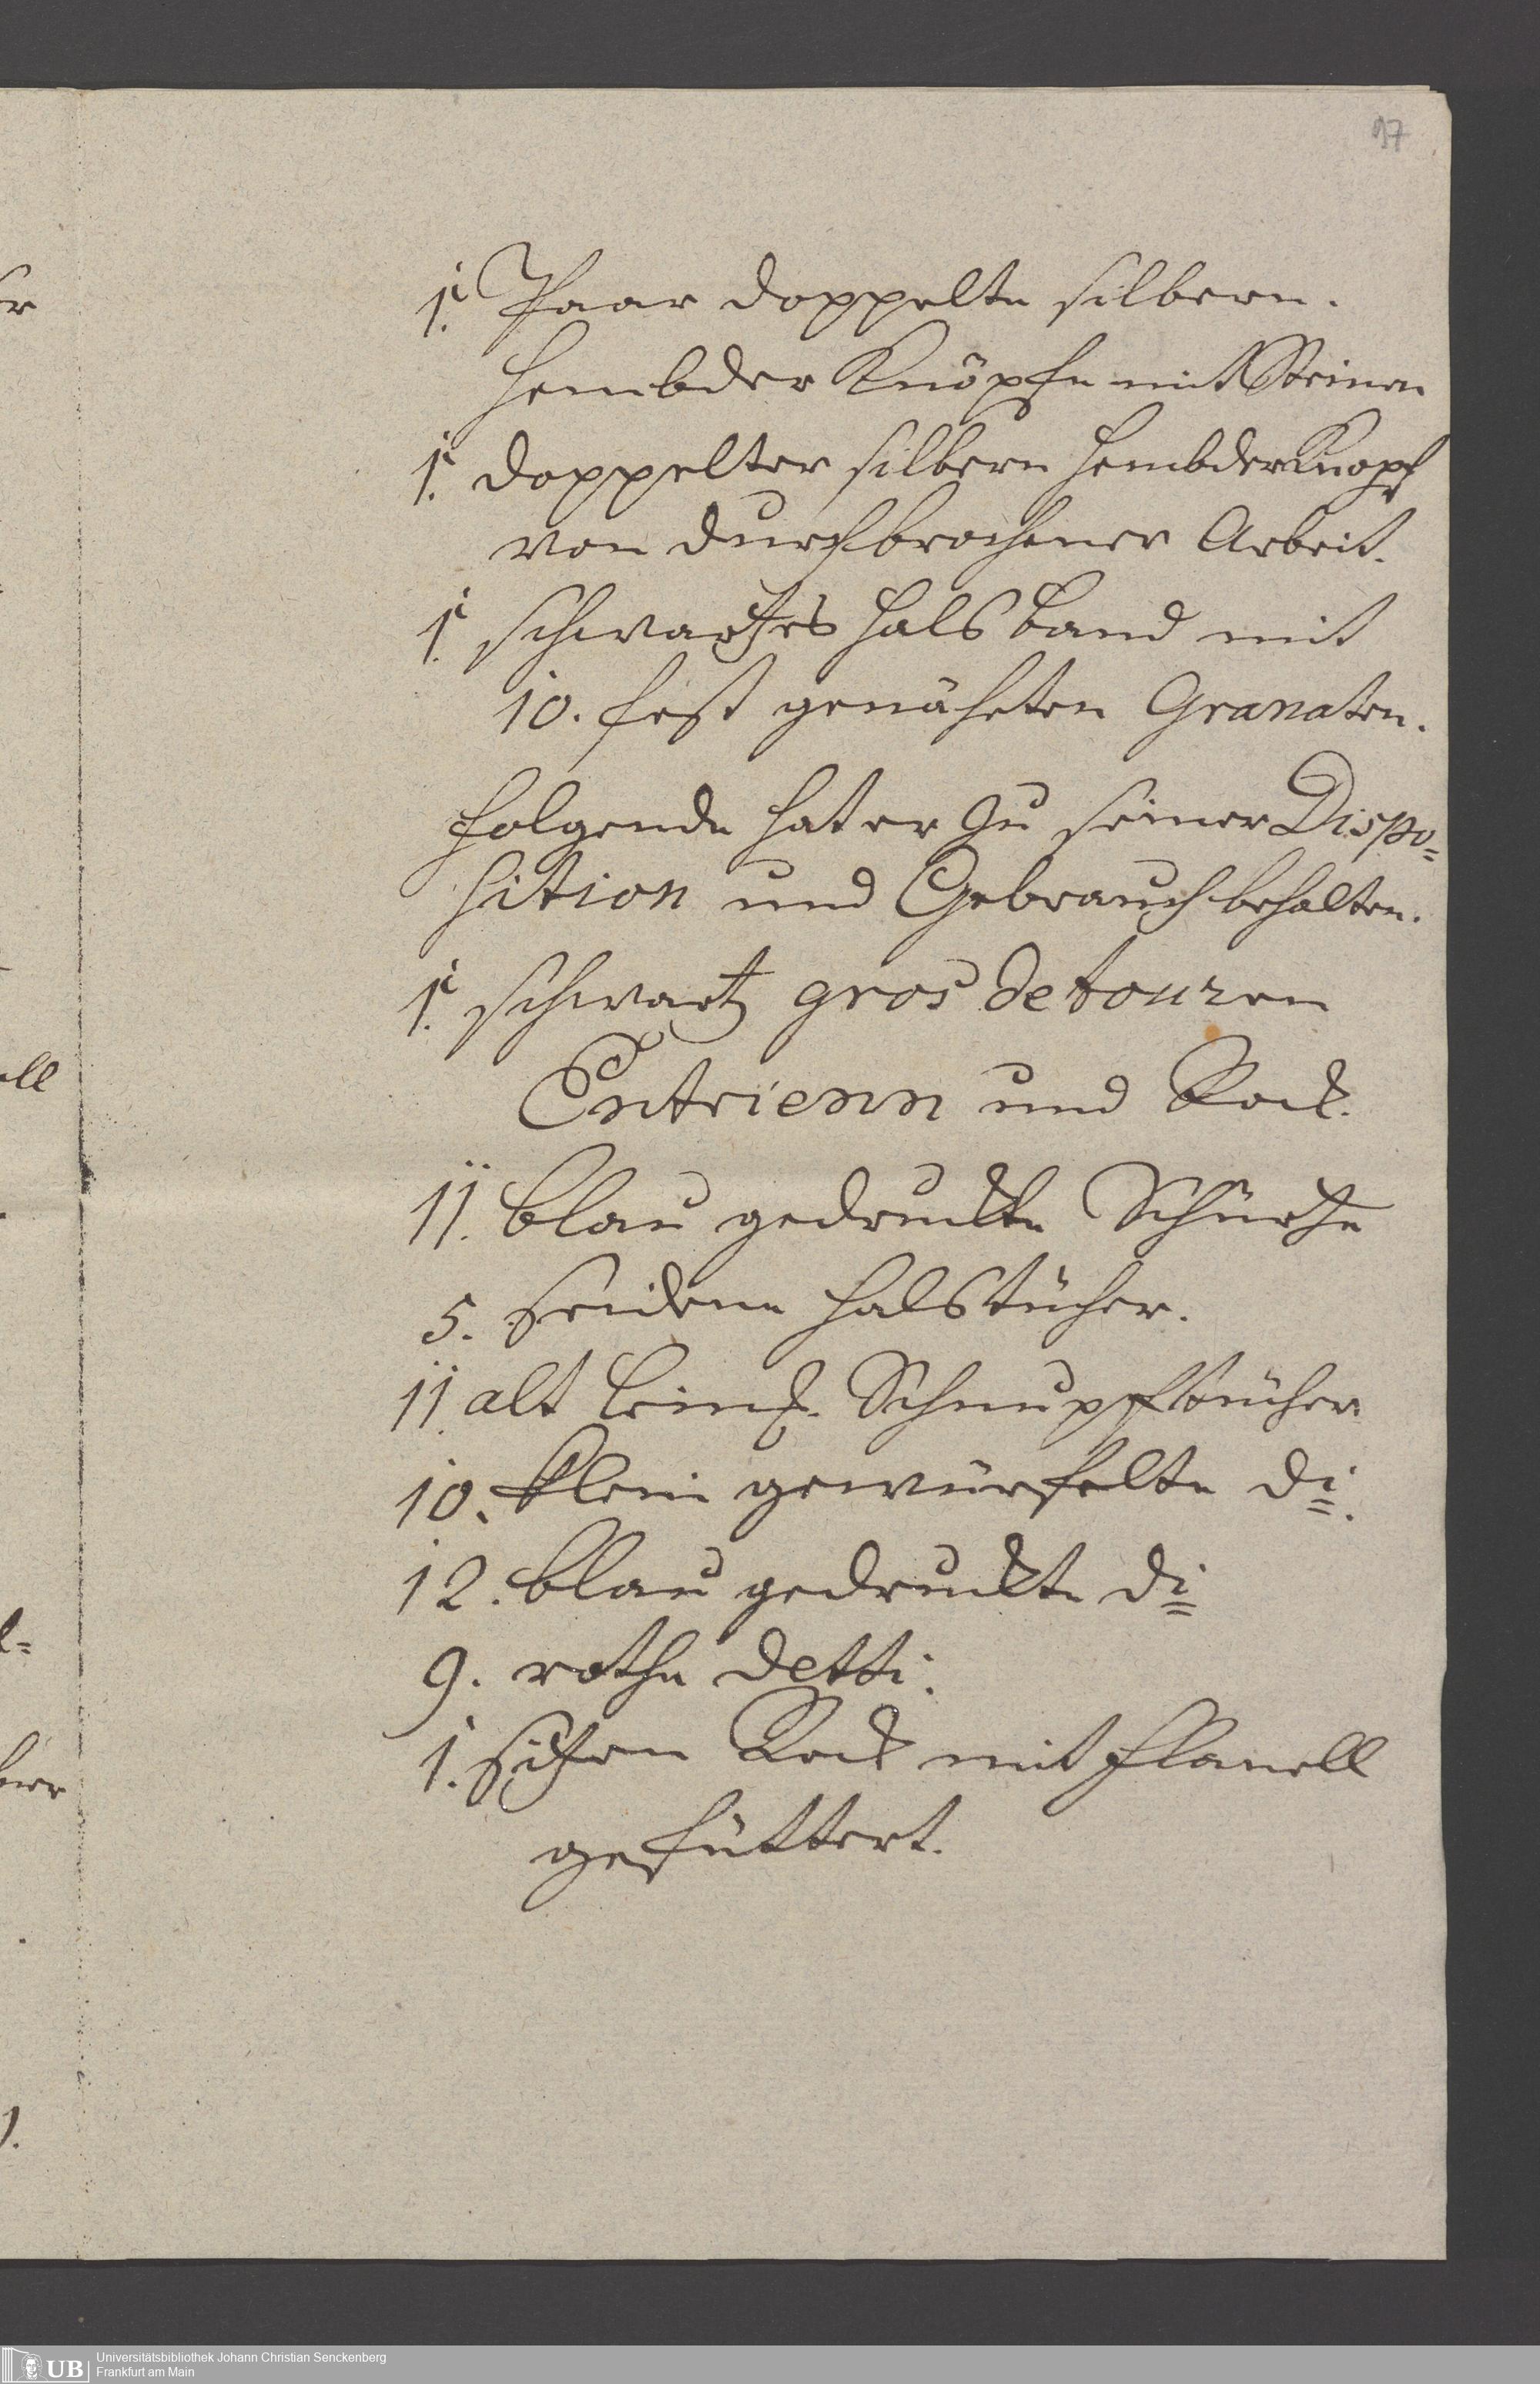 17
1. Paar doppelte silbern.
Hembder Knöpfe mit Steinen
1. doppelter silbern Hembder Knopf
von durchbrochener Arbeit.
1. schwartzes Hals band mit
10. fest genähten Granaten.
Folgende hat er zu seiner Dispo=
sition und Gebrauch behalten.
1. schwartz gros de touren
Entrienn und Rock.
11. blau gedruckte Schürtze
5. seidene Halstücher.
11. alt leinen Schnupftücher
10. klein gewürfelte di.
12. blau gedruckte di
9. rothe detti.
1. sitzen Rock mit Flanell
gefüttert.
UB Universitätsbibliothek Johann Christian Senckenberg
Frankfurt am Main